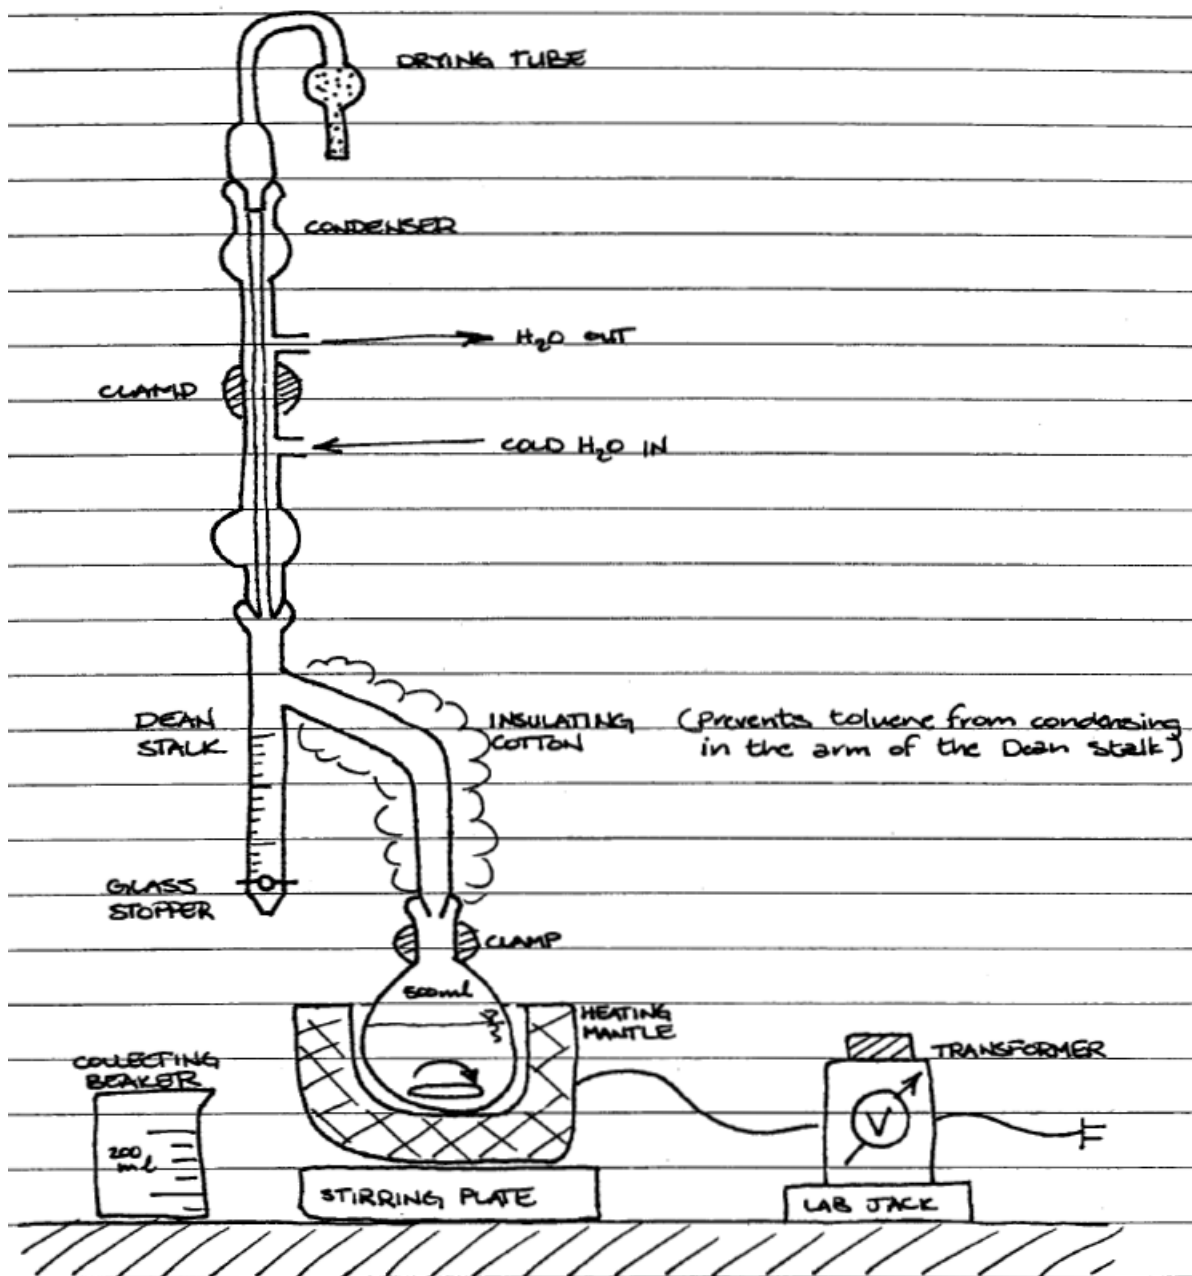 DRYING TUBE
CONDENSER
H₂O OUT
CLAMP
COLD H₂O IN
DEAN
STALK
INSULATING
COTTON
(Prevents toluene from condensing
in the arm of the Dean Stalk)
GLASS
STOPPER
CLAMP
500ml
HEATING
MANTLE
COLLECTING
BEAKER
200
ml
TRANSFORMER
V
STIRRING PLATE
LAB JACK